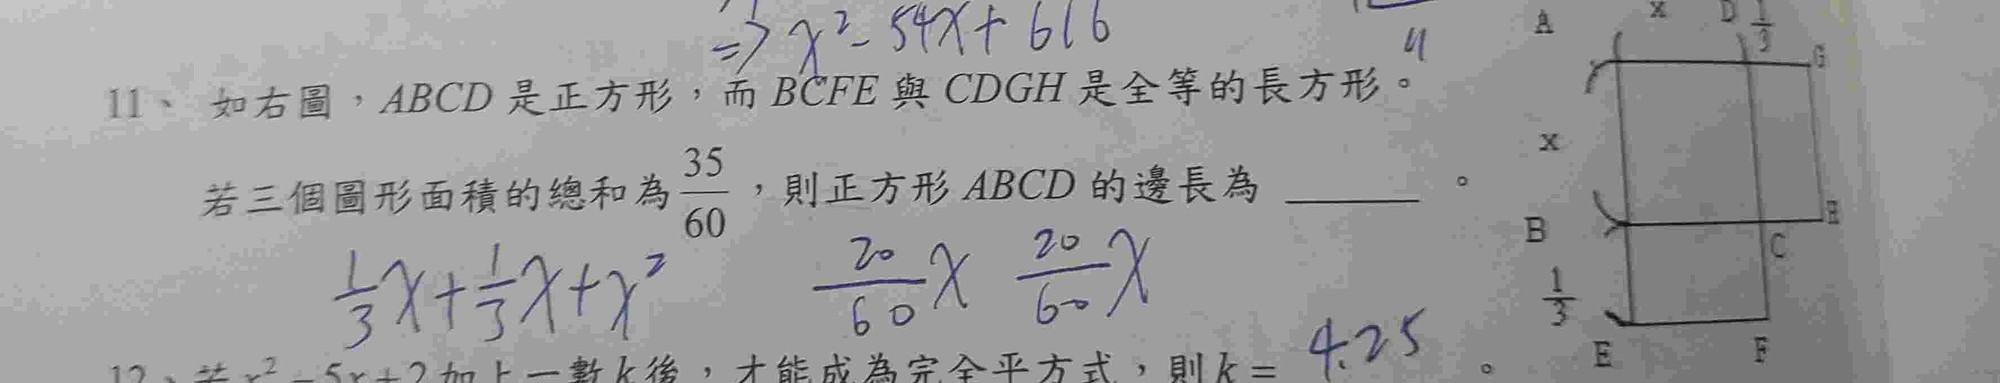 ⇒ x² - 54x + 616
4
11、 如右圖，ABCD 是正方形，而 BCFE 與 CDGH 是全等的長方形。
若三個圖形面積的總和為 35/60，則正方形 ABCD 的邊長為 ______ 。
1/3 x + 1/3 x + x² 20/60 x 20/60 x
12、若 x² - 5x + 2 加上一數 k 後，才能成為完全平方式，則 k = 4.25 。
A x D 1/3
G
x
B C H
1/3
E F